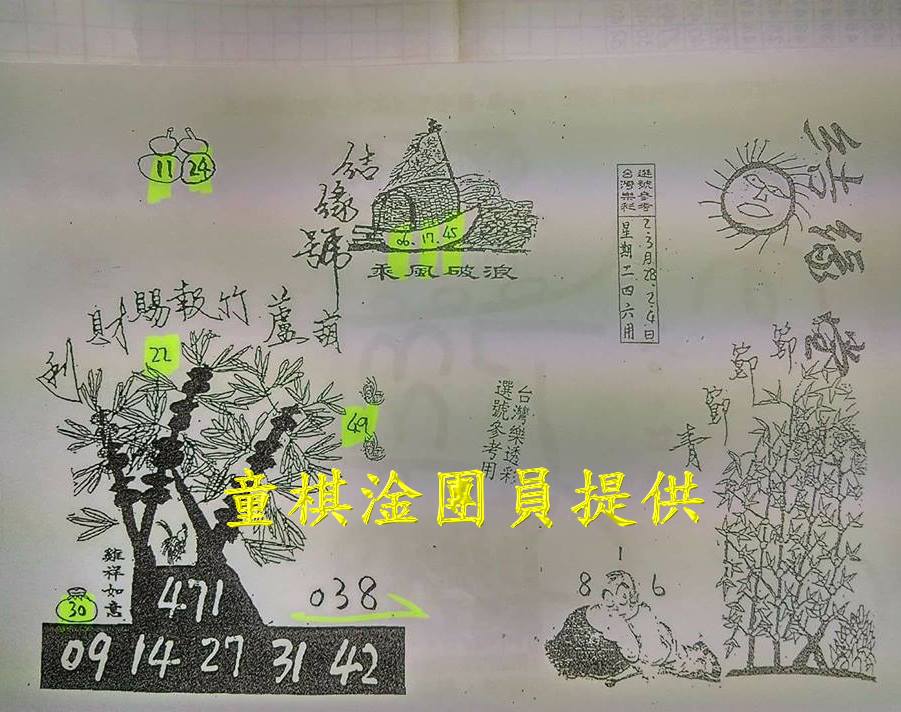 結緣堂
選號參考
台灣樂彩
2.3月28.2.4.日
星期二四六用
結緣號
11 24
06.17.45
乘風破浪
葫蘆竹報賜財利
22
節節節青
49
台灣樂透彩
選號參考用
童棋淦團員提供
雞祥如意
30
471
038
8 1 6
09 14 27 31 42